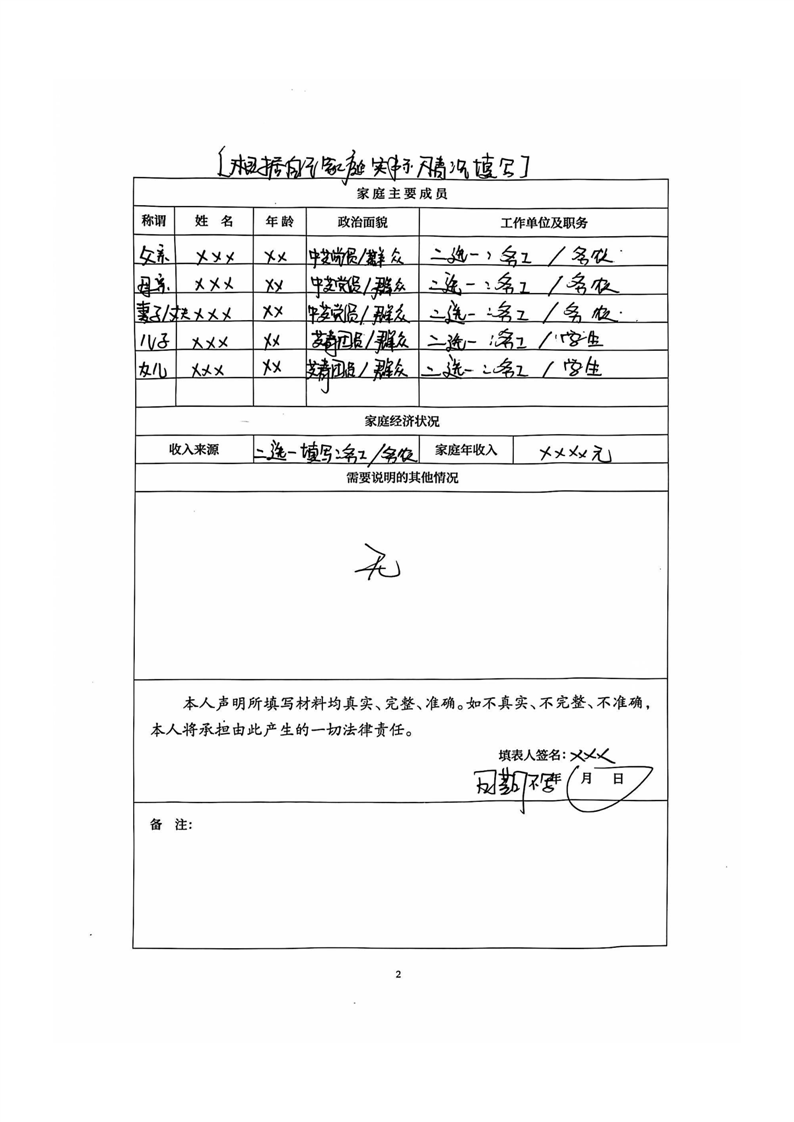 [根据自己家庭实际情况填写]
家庭主要成员
称谓 姓 名 年龄 政治面貌 工作单位及职务
父亲 xxx xx 中共党员/群众 二选一:务工/务农
母亲 xxx xx 中共党员/群众 二选一:务工/务农
妻子/丈夫 xxx xx 中共党员/群众 二选一:务工/务农
儿子 xxx xx 共青团员/群众 二选一:务工/学生
女儿 xxx xx 共青团员/群众 二选一:务工/学生
家庭经济状况
收入来源 二选一填写:务工/务农 家庭年收入 xxxx元
需要说明的其他情况
无
本人声明所填写材料均真实、完整、准确。如不真实、不完整、不准确,
本人将承担由此产生的一切法律责任。
填表人签名:xxx
日期不写 年 月 日
备 注:
2